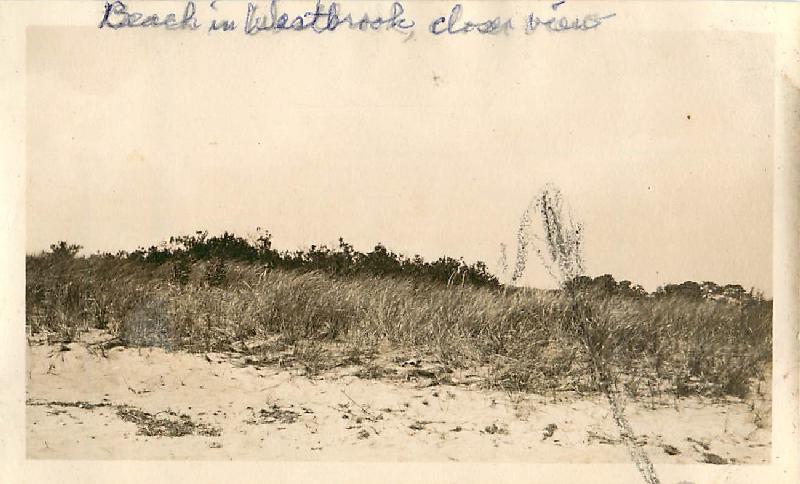 Beach in Westbrook, closer view